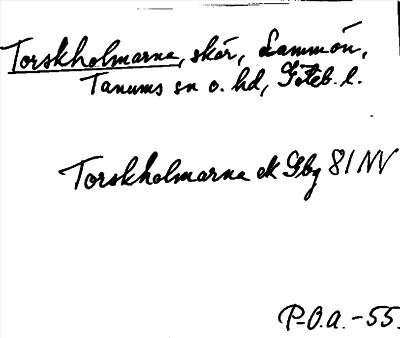 Torskholmarna, skär, Lammön,
Tanums sn o. hd, Göteb. l.
Torskholmarna ek Gbg 81 NV
P-O.a. -55.